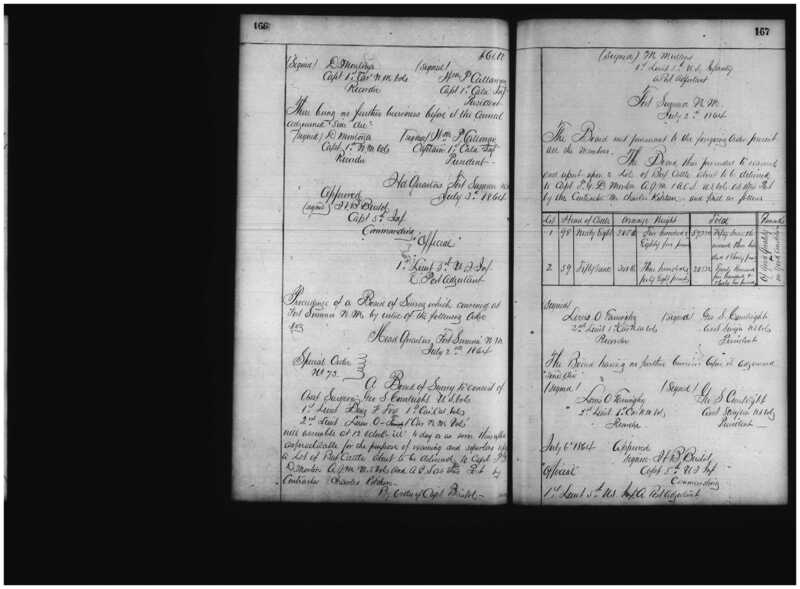 166
(Signed) D Montoya (Signed)
Capt 1st Cav N.M. Vols Wm P. Callaway
Recorder Capt 1st Cala Inf
President
There being no further business before it the Council
adjourned Sine die
(Signed) D Montoya (Signed) Wm P. Callaway
Capt 1st N M Vols Captain 1st Cala Inf
Recorder President
Hd Quarters Fort Sumner NM
July 3rd 1864
Approved
(signed) H B Bristol
Capt 5th Inf
Commanding
"Official"
1st Lieut 5th U S Inf
Post Adjutant
Proceedings of a Board of Survey which convened at
Fort Sumner N M by virtue of the following order
Head Quarters, Fort Sumner N M
July 2nd 1864
Special Order
No 73
A Board of Survey to consist of
Asst Surgeon Geo S Courtright U S Vols
1st Lieut Fox 1st Cav Cal Vols
2nd Lieut 1st Cav N M Vols
will assemble at 12 o'clock M to day or as soon thereafter
as practicable for the purpose of examining and reporting upon
a Lot of Beef Cattle about to be delivered to Capt
D Morton A Q M U S Vols and A C S at this Post by
Contractor Charles
By order of Capt Bristol
167
(Signed)
1st Lieut 5th U S Infantry
Post Adjutant
Fort Sumner N. M.
July 2nd 1864
The Board met pursuant to the foregoing Order present
all the Members.
The Board then proceeded to examine
and report upon 2 Lots of Beef Cattle about to be delivered
to Capt D Morton A Q M & A C S U S Vols at this Post
by the Contractor Mr Charles and find as follows
Lot Head of Cattle Average Weight Total Remarks
1 98 Ninety Eight Five hundred &
Eighty five pounds
2 59 Fifty nine
Of Good Quality
in Good Condition
Signed
2nd Lieut 1st Cav N M Vols (Signed) Geo S Courtright
Recorder Asst Surgn U S Vols
President
The Board having no further business before it adjourned
"Sine die"
(Signed) (Signed) Geo S Courtright
2nd Lieut 1st Cav N M Vols Asst Surgeon U S Vols
Recorder President
July 6th 1864 Approved
Signed H B Bristol
"Official" Capt 5th U S Inf
Commanding
1st Lieut 5th U.S. Inf Post Adjutant